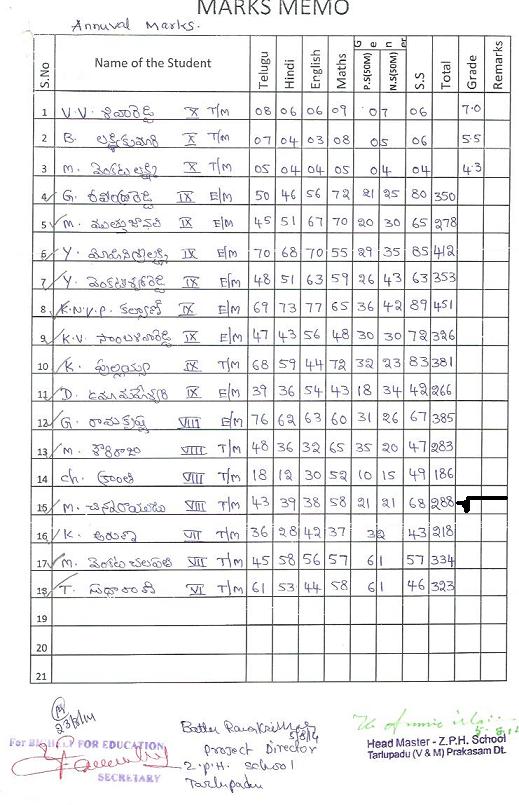 MARKS MEMO
Annuval Marks.
S.No Name of the Student Telugu Hindi English Maths General P.S(50M) N.S(50M) S.S Total Grade Remarks
1 V.V. X T/M 08 06 06 09 07 06 7.0
2 B. X T/M 07 04 03 08 05 06 5.5
3 M. X T/M 05 04 04 05 04 04 4.3
4 G. IX E/M 50 46 56 72 21 25 80 350
5 M. IX E/M 45 51 67 70 20 30 65 278
6 Y. IX E/M 70 68 70 55 29 35 85 412
7 Y. IX E/M 48 51 63 59 26 43 63 353
8 K.N.V.P. కల్యాణి IX E/M 69 73 77 65 36 42 89 451
9 K.V. IX E/M 47 43 56 48 30 30 72 326
10 K. పుల్లయ్య IX T/M 68 59 44 72 32 23 83 381
11 D. ఉమామహేశ్వరి IX E/M 39 36 54 43 18 34 42 266
12 G. రామకృష్ణ VIII E/M 76 62 63 60 31 26 67 385
13 M. శౌరిరాజు VIII T/M 48 36 32 65 35 20 47 283
14 Ch. క్రాంతి VIII T/M 18 12 30 52 10 15 49 186
15 M. చినరాయుడు VIII T/M 43 39 38 58 21 21 68 288
16 K. అరుణ VII T/M 36 28 42 37 32 43 218
17 M. వెంకటచలపతి VII T/M 45 58 56 57 61 57 334
18 T. సుధారాణి VI T/M 61 53 44 58 61 46 323
19
20
21
23/8/14
For FOR EDUCATION,
SECRETARY
5/8/14
Project Director
Z.P.H. School
Tarlupadu
Head Master - Z.P.H. School
Tarlupadu (V & M) Prakasam Dt.